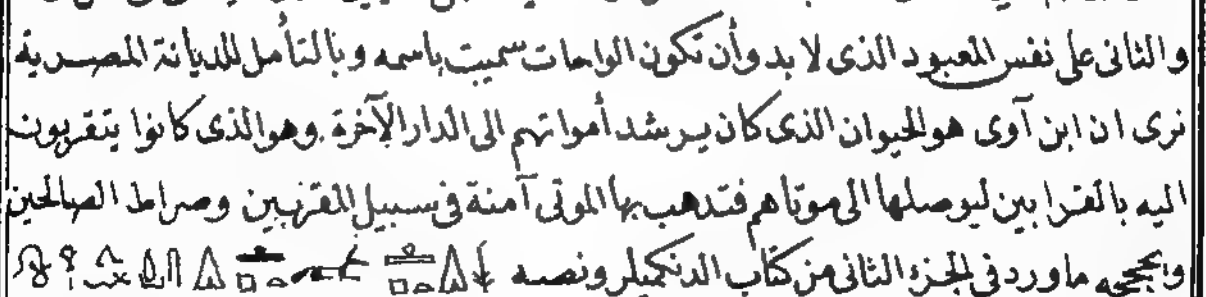 والثانى على نفس المعبود الذى لا بد وأن تكون الواحات سميت باسمه وبالتأمل للديانة المصرية
نرى ان ابن آوى هو الحيوان الذى كان يرشد أمواتهم الى الدار الآخرة وهو الذى كانوا يتقربون
اليه بالقرابين ليوصلها الى موتاهم فتذهب بها الموتى آمنة فى سبيل المقربين وصراط الصالحين
ما ورد فى الجزء الثانى من كتاب الدنكميلر ونصه